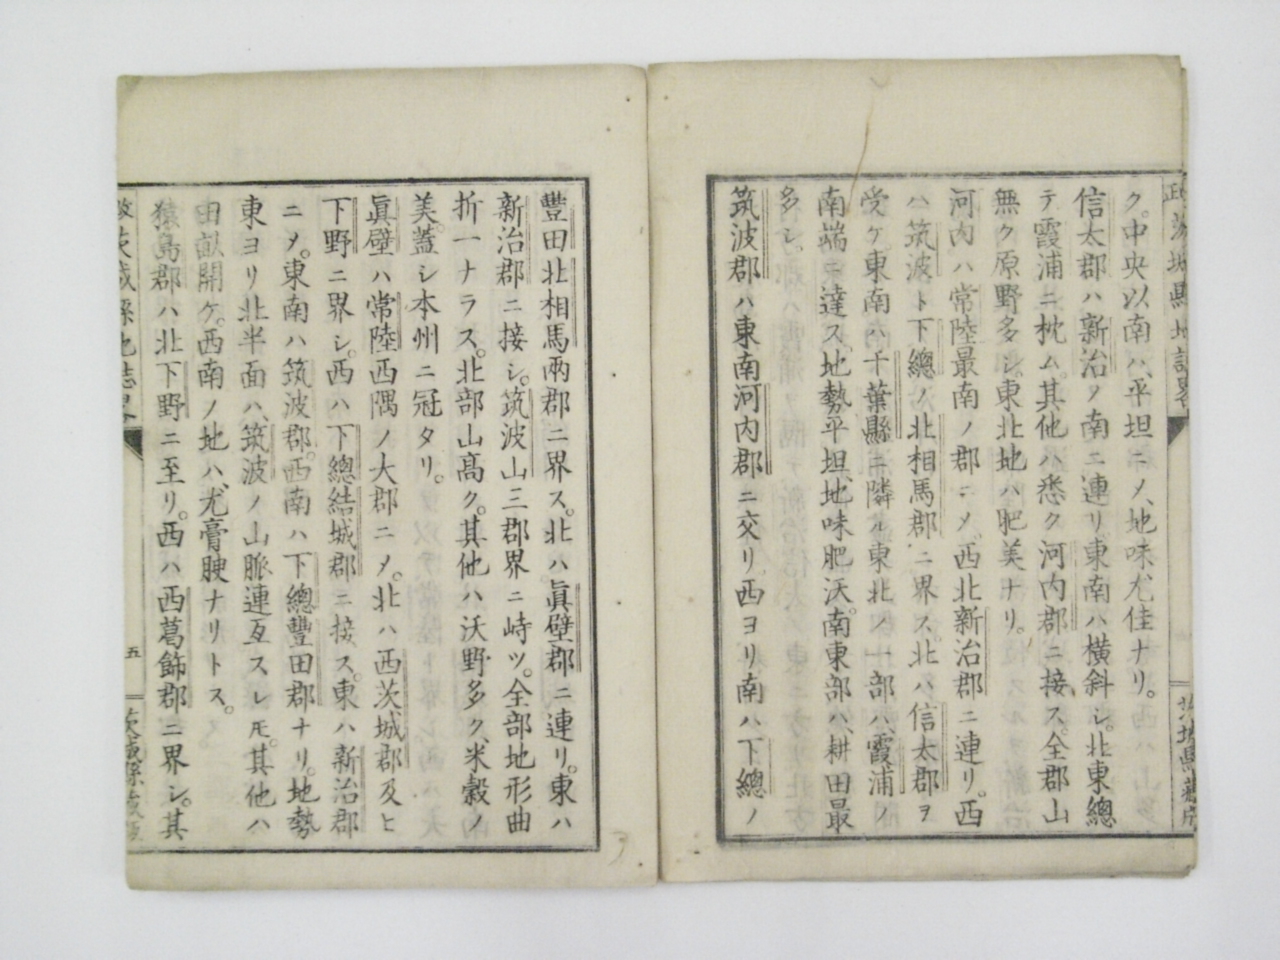 ク。中央以南ハ、平坦ニメ、地味尤佳ナリ。
信太郡ハ新治ノ南ニ連リ、東南ハ横斜シ。北東總
テ霞浦ニ枕ム。其他ハ悉ク河内郡ニ接ス。全郡山
無ク原野多シ、東北地ハ肥美ナリ。
河内ハ常陸最南ノ郡ニメ、西北新治郡ニ連リ。西
ハ筑波ト下總ノ北相馬郡ニ界ス。北ハ信太郡ヲ
受ケ、東南ハ千葉縣ニ隣ル、東北ノ一部ハ、霞浦ノ
南端ニ達ス、地勢平坦、地味肥沃。南東部ハ、耕田最
多シ。
筑波郡ハ東南河内郡ニ交リ、西ヨリ南ハ、下總ノ
豐田北相馬兩郡ニ界ス。北ハ眞壁郡ニ連リ。東ハ
新治郡ニ接シ。筑波山三郡界ニ峙ツ。全部地形曲
折一ナラス。北部山髙ク。其他ハ沃野多ク、米穀ノ
美。蓋シ本州ニ冠タリ。
眞壁ハ常陸西隅ノ大郡ニメ。北ハ西茨城郡及ヒ
下野ニ界シ。西ハ下總結城郡ニ接ス。東ハ新治郡
ニメ。東南ハ筑波郡。西南ハ下總豐田郡ナリ。地勢
東ヨリ北半面ハ、筑波ノ山脈連亙スレ𪜈。其他ハ
田畝開ケ。西南ノ地ハ、尤膏腴ナリトス。
猿島郡ハ北下野ニ至リ。西ハ西葛飾郡ニ界シ。其
茨城縣地誌畧
五